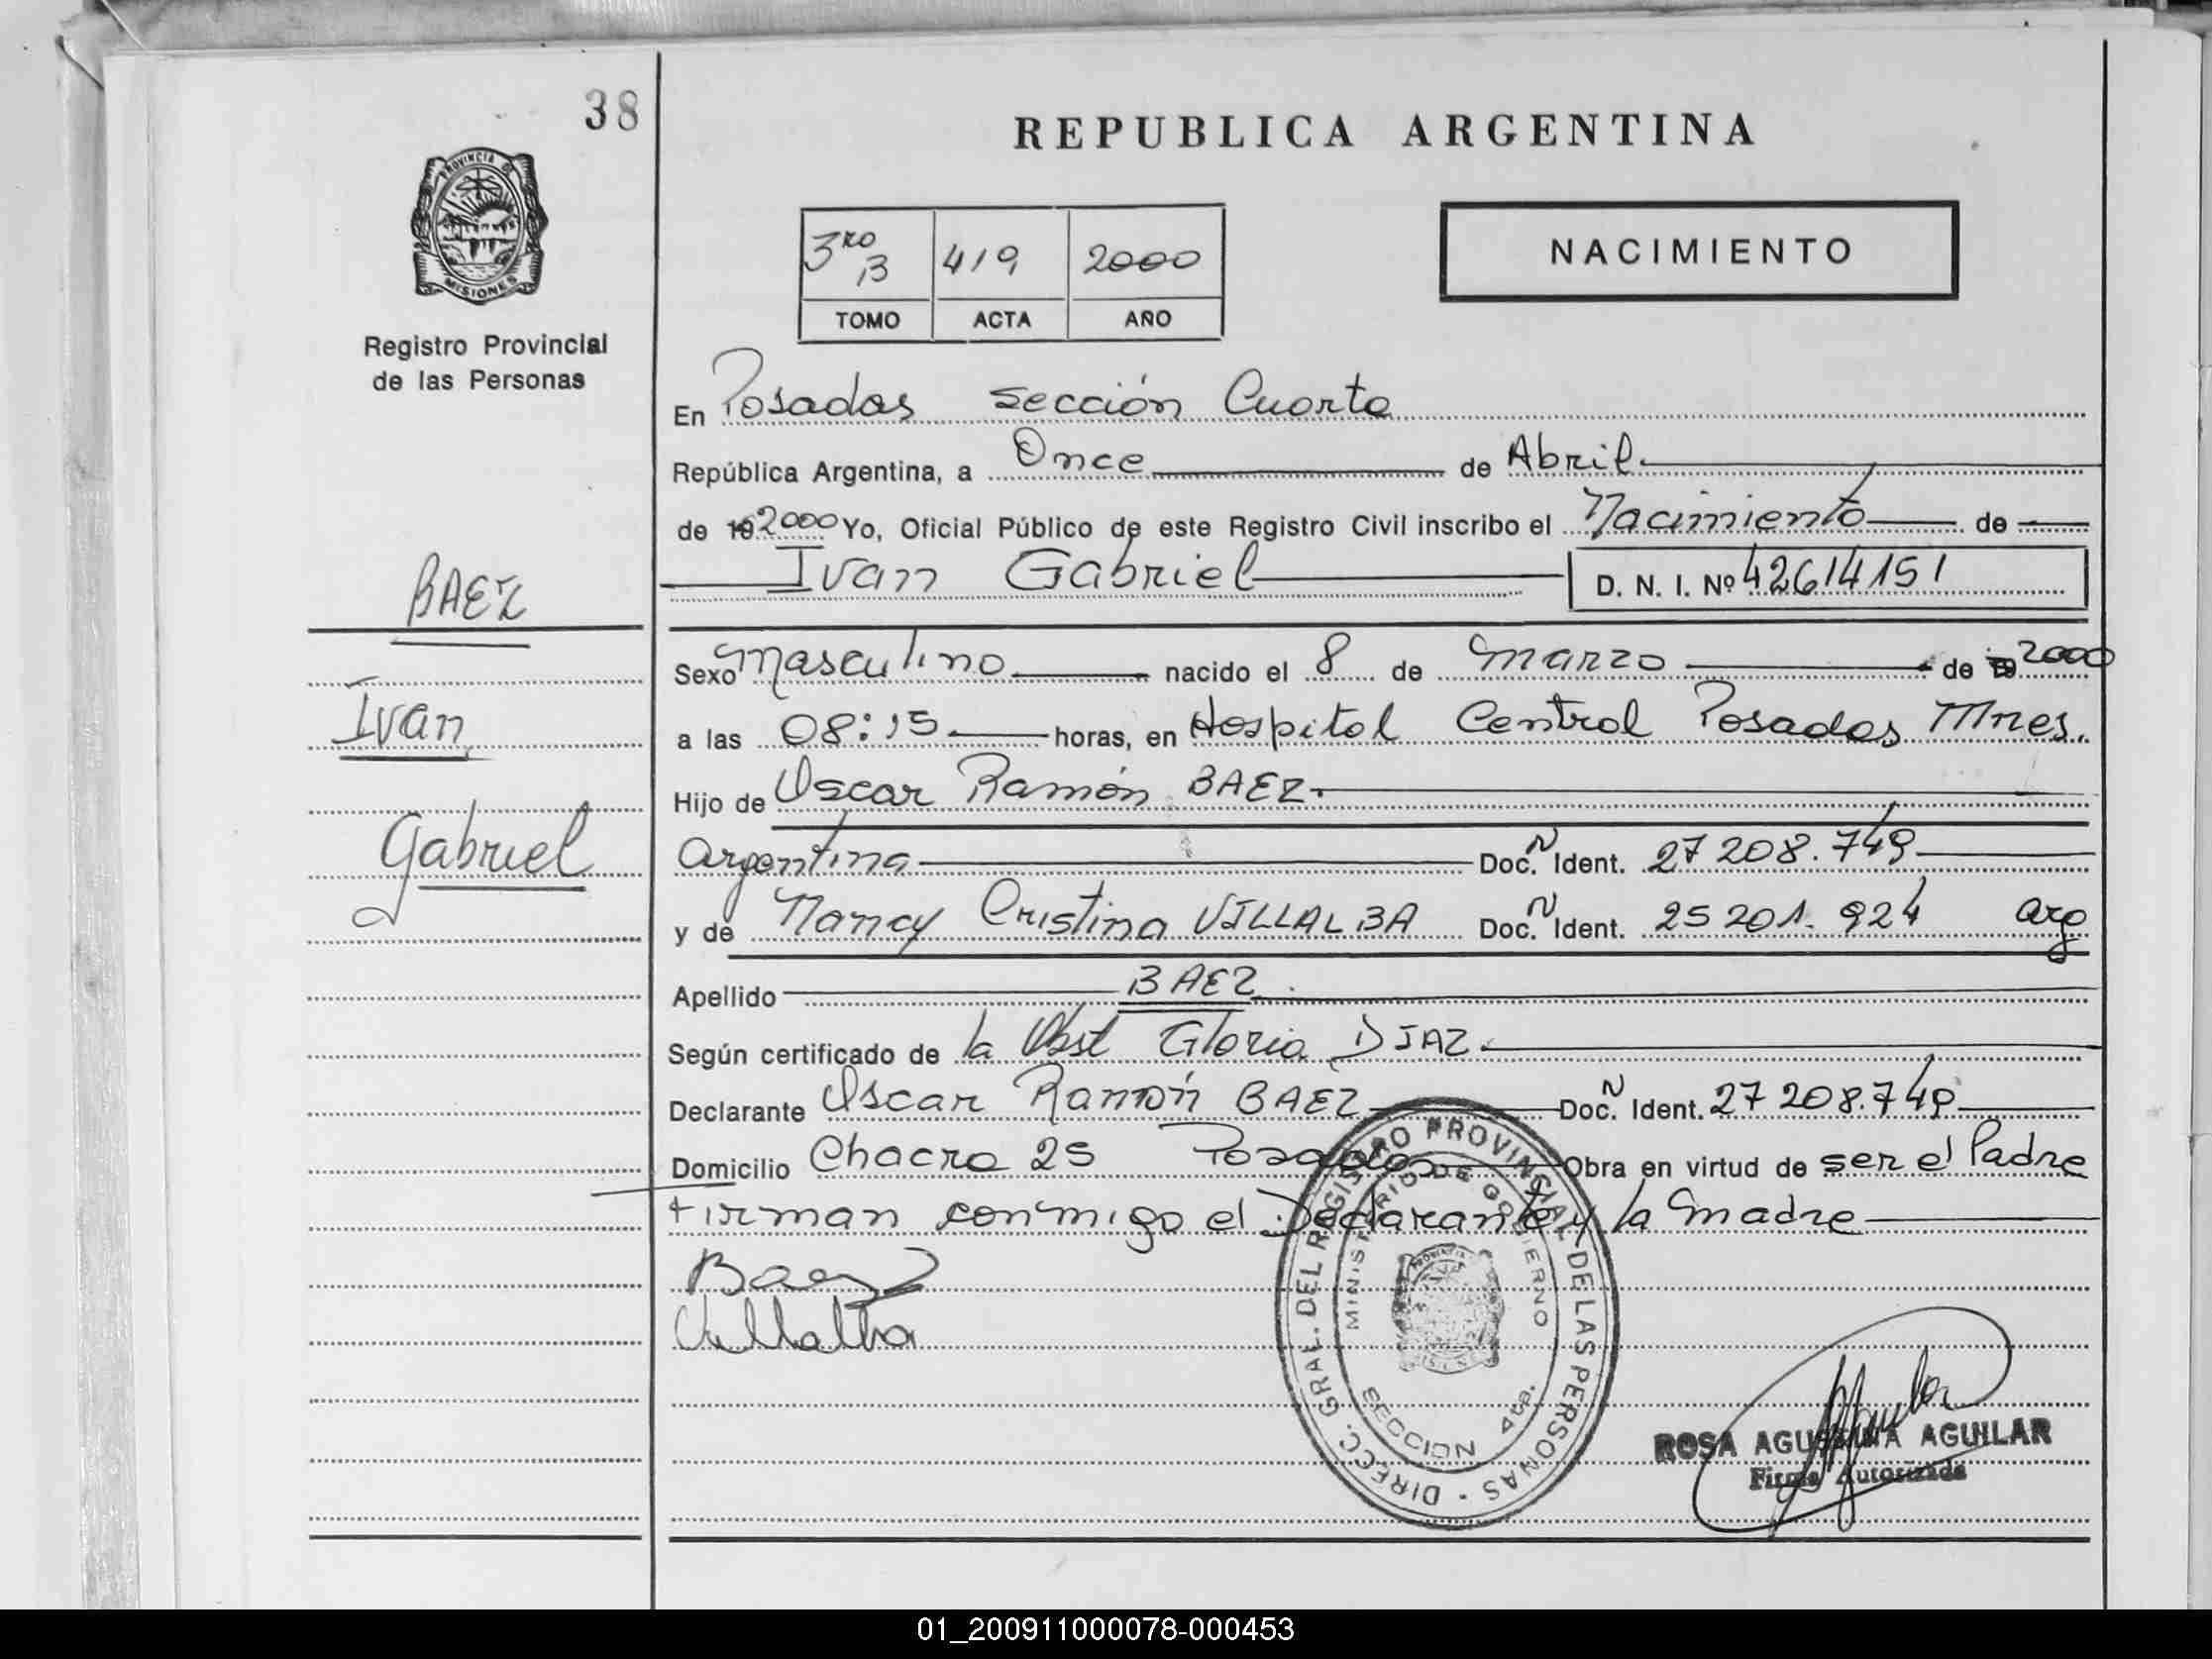 38
PROVINCIA DE
MISIONES
Registro Provincial
de las Personas
BAEZ
Ivan
Gabriel
REPUBLICA ARGENTINA
3ro B 419 2000
TOMO ACTA AÑO
NACIMIENTO
En Posadas Sección Cuarta
República Argentina, a Once de Abril
de 19 2000 Yo, Oficial Público de este Registro Civil inscribo el Nacimiento de
Ivan Gabriel D. N. I. Nº 42614151
Sexo Masculino nacido el 8 de Marzo de 19 2000
a las 08:15 horas, en Hospital Central Posadas Mnes.
Hijo de Oscar Ramón BAEZ
Argentina Doc. N Ident. 27 208.749
y de Nancy Cristina VILLALBA Doc. N Ident. 25 201.924 arg
Apellido BAEZ
Según certificado de la Obst Gloria DIAZ
Declarante Oscar Ramón BAEZ Doc. N Ident. 27 208.749
Domicilio Chacra 25 Posadas Obra en virtud de ser el Padre
Firman conmigo el Declarante y la Madre
Baez
Villalba
DIRECC. GRAL. DEL REGISTRO PROVINCIAL DE LAS PERSONAS
MINISTERIO DE GOBIERNO
SECCION 4ta.
ROSA AGUSTINA AGUILAR
Firma Autorizada
01_200911000078-000453